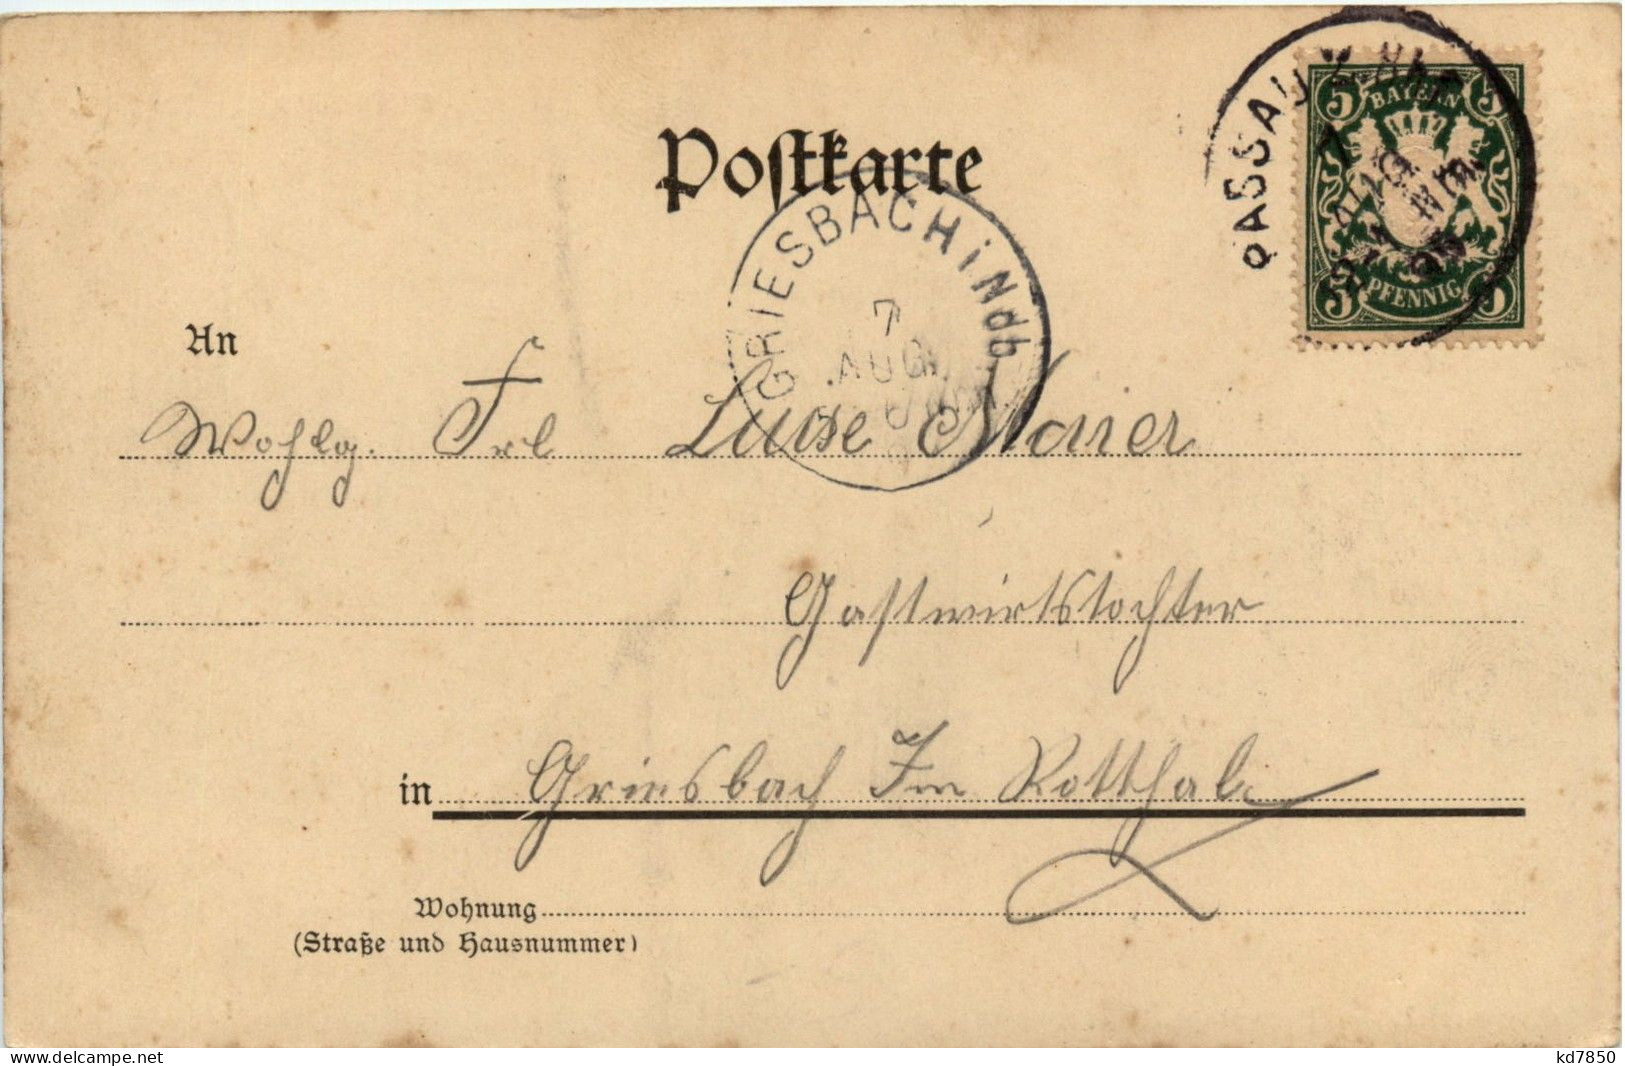 Postkarte
BAYERN
5 5
PFENNIG
5 5
PASSAU
7
AUG
NM
GRIESBACH i Ndbb
7
AUG
An
Wohlg. Frl Luise Maier
Gastwirtstochter
in Griesbach Im Rotthal
Wohnung
(Straße und Hausnummer)
www.delcampe.net
kd7850